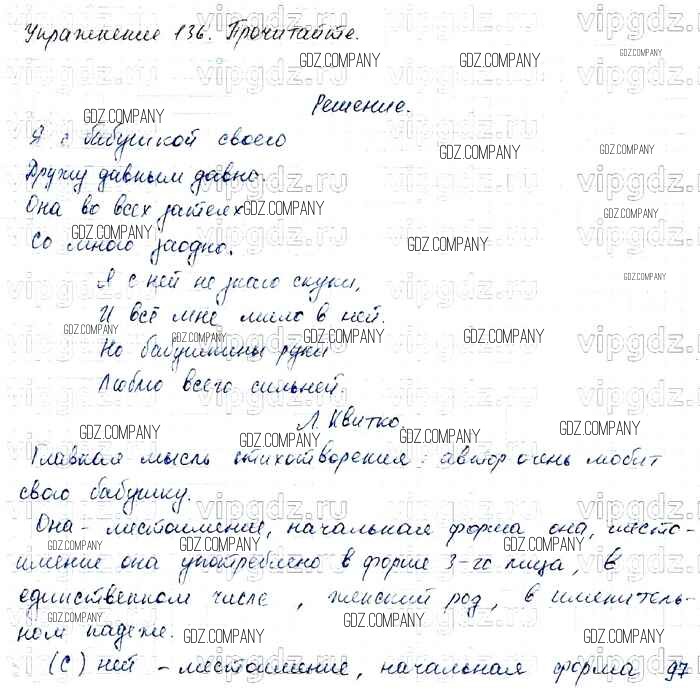 Упражнение 136. Прочитайте.
Решение.
Я с бабушкой своею
Дружу давным давно.
Она во всех затеях
Со мною заодно.
Я с ней не знаю скуки,
И всё мне мило в ней.
Но бабушкины руки
Люблю всего сильней.
Л. Квитко.
Главная мысль стихотворения: автор очень любит
свою бабушку.
Она - местоимение, начальная форма она, место-
имение она употреблено в форме 3-го лица, в
единственном числе, женский род, в именитель-
ном падеже.
(С) ней - местоимение, начальная форма 97
GDZ.COMPANY
vipgdz.ru